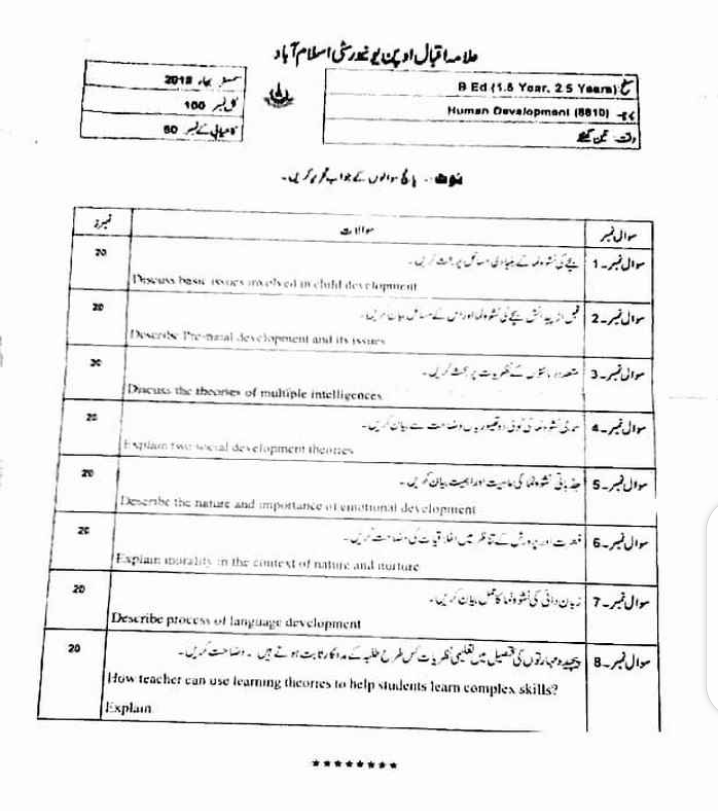 علامہ اقبال اوپن یونیورسٹی اسلام آباد
سطح B Ed (1.5 Year, 2.5 Years)
Human Development (8610)
وقت: تین گھنٹے
سمسٹر بہار 2018
کل نمبر 100
کامیابی کے نمبر 50
نوٹ:۔ پانچ سوالوں کے جواب تحریر کریں۔
سوال نمبر سوالات نمبرز
سوال نمبر۔1 بچے کی نشوونما کے بنیادی مسائل پر بحث کریں۔ 20
Discuss basic issues involved in child development
سوال نمبر۔2 قبل از پیدائش بچے کی نشوونما اور اس کے مسائل بیان کریں۔ 20
Describe Pre-natal development and its issues
سوال نمبر۔3 متعدد ذہانتوں کے نظریات پر بحث کریں۔ 20
Discuss the theories of multiple intelligences
سوال نمبر۔4 سماجی نشوونما کی کوئی دو تھیوریز وضاحت سے بیان کریں۔ 20
Explain two social development theories
سوال نمبر۔5 جذباتی نشوونما کی ماہیت اور اہمیت بیان کریں۔ 20
Describe the nature and importance of emotional development
سوال نمبر۔6 فطرت اور پرورش کے تناظر میں اخلاقیات کی وضاحت کریں۔ 20
Explain morality in the context of nature and nurture
سوال نمبر۔7 زبان دانی کی نشوونما کا عمل بیان کریں۔ 20
Describe process of language development
سوال نمبر۔8 پیچیدہ مہارتوں کی تحصیل میں تعلیمی نظریات کس طرح طلبہ کے مددگار ثابت ہوتے ہیں ۔ وضاحت کریں۔ 20
How teacher can use learning theories to help students learn complex skills?
Explain
********